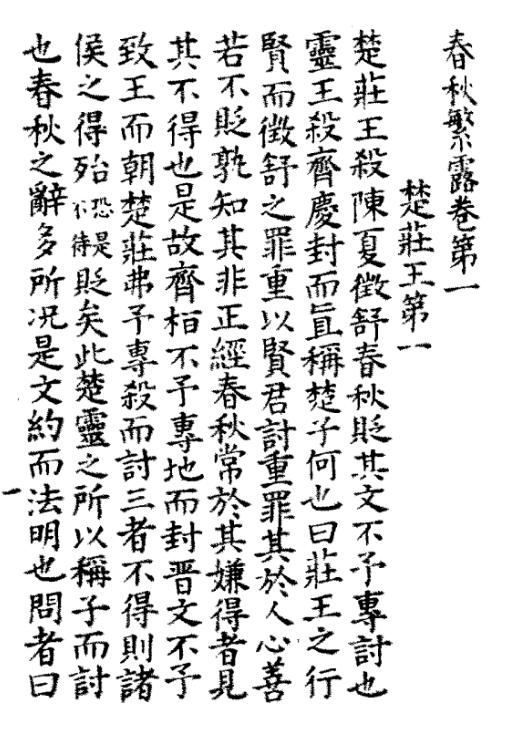 春秋繁露卷第一
楚莊王第一
楚莊王殺陳夏徵舒春秋貶其文不予專討也
靈王殺齊慶封而直稱楚子何也曰莊王之行
賢而徵舒之罪重以賢君討重罪其於人心善
若不貶孰知其非正經春秋常於其嫌得者見
其不得也是故齊桓不予專地而封晋文不予
致王而朝楚莊弗予專殺而討三者不得則諸
侯之得殆恐是不待貶矣此楚靈之所以稱子而討
也春秋之辭多所况是文約而法明也問者曰
一